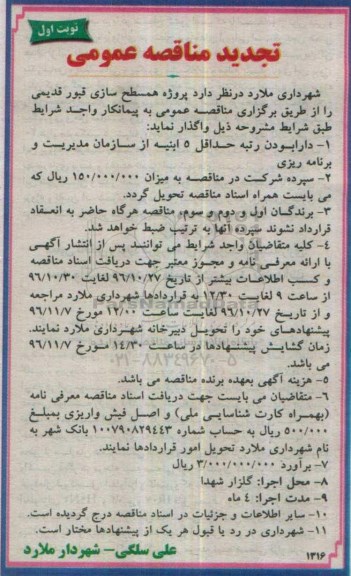 نوبت اول
تجدید مناقصه عمومی
شهرداری ملارد درنظر دارد پروژه همسطح سازی قبور قدیمی
را از طریق برگزاری مناقصه عمومی به پیمانکار واجد شرایط
طبق شرایط مشروحه ذیل واگذار نماید:
۱- دارابودن رتبه حداقل ۵ ابنیه از سازمان مدیریت و
برنامه ریزی
۲- سپرده شرکت در مناقصه به میزان ۱۵۰/۰۰۰/۰۰۰ ریال که
می بایست همراه اسناد مناقصه تحویل گردد.
۳- برندگان اول و دوم و سوم، مناقصه هرگاه حاضر به انعقاد
قرارداد نشوند سپرده آنها به ترتیب ضبط خواهد شد.
۴- کلیه متقاضیان واجد شرایط می توانند پس از انتشار آگهی
با ارائه معرفی نامه و مجوز معتبر جهت دریافت اسناد مناقصه
و کسب اطلاعات بیشتر از تاریخ ۹۶/۱۰/۲۷ لغایت ۹۶/۱۰/۳۰
از ساعت ۹ لغایت ۱۲/۳۰ به قراردادها شهرداری ملارد مراجعه
و از تاریخ ۹۶/۱۰/۲۷ لغایت ساعت ۱۲/۰۰ مورخ ۹۶/۱۱/۷
پیشنهادهای خود را تحویل دبیرخانه شهرداری ملارد نمایند.
زمان گشایش پیشنهادها در ساعت ۱۴/۳۰ مورخ ۹۶/۱۱/۷
می باشد.
۵- هزینه آگهی بعهده برنده مناقصه می باشد.
۶- متقاضیان می بایست جهت دریافت اسناد مناقصه معرفی نامه
(بهمراه کارت شناسایی ملی) و اصل فیش واریزی بمبلغ
۵۰۰/۰۰۰ ریال به حساب شماره ۱۰۰۷۹۰۸۲۹۴۴۳ بانک شهر به
نام شهرداری ملارد تحویل امور قراردادها نمایند.
۷- برآورد ۳/۰۰۰/۰۰۰/۰۰۰ ریال
۸- محل اجرا: گلزار شهدا
۹- مدت اجرا: ۴ ماه
۱۰- سایر اطلاعات و جزئیات در اسناد مناقصه درج گردیده است.
۱۱- شهرداری در رد یا قبول هر یک از پیشنهادها مختار است.
علی سلگی- شهردار ملارد
۱۳۱۶